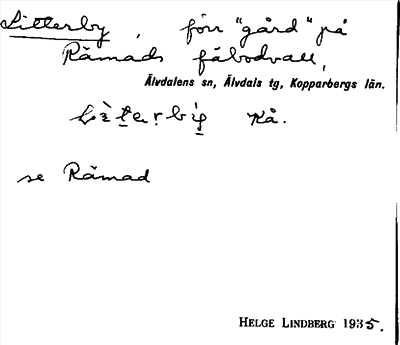 Litterby, förr "gård" på
Råmads fäbodvall,
Älvdalens sn, Älvdals tg, Kopparbergs län.
Kå.
se Råmad
HELGE LINDBERG 1935.